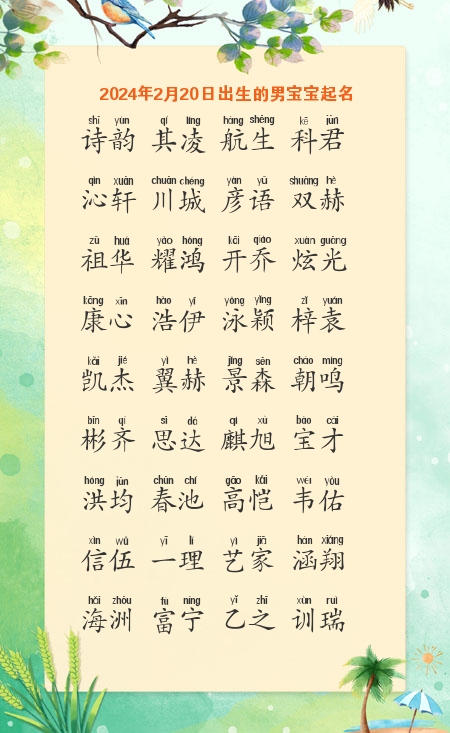 2024年2月20日出生的男宝宝起名
shī yùn qí líng háng shēng kē jūn
诗韵 其凌 航生 科君
qìn xuān chuān chéng yàn yǔ shuāng hè
沁轩 川城 彦语 双赫
zǔ huá yào hóng kāi qiáo xuàn guāng
祖华 耀鸿 开乔 炫光
kāng xīn hào yī yǒng yǐng zǐ yuán
康心 浩伊 泳颖 梓袁
kǎi jié yì hè jǐng sēn cháo míng
凯杰 翼赫 景森 朝鸣
bīn qí sī dá qí xù bǎo cái
彬齐 思达 麒旭 宝才
hóng jūn chūn chí gāo kǎi wéi yòu
洪均 春池 高恺 韦佑
xìn wǔ yī lǐ yì jiā hán xiáng
信伍 一理 艺家 涵翔
hǎi zhōu fù níng yǐ zhī xùn ruì
海洲 富宁 乙之 训瑞